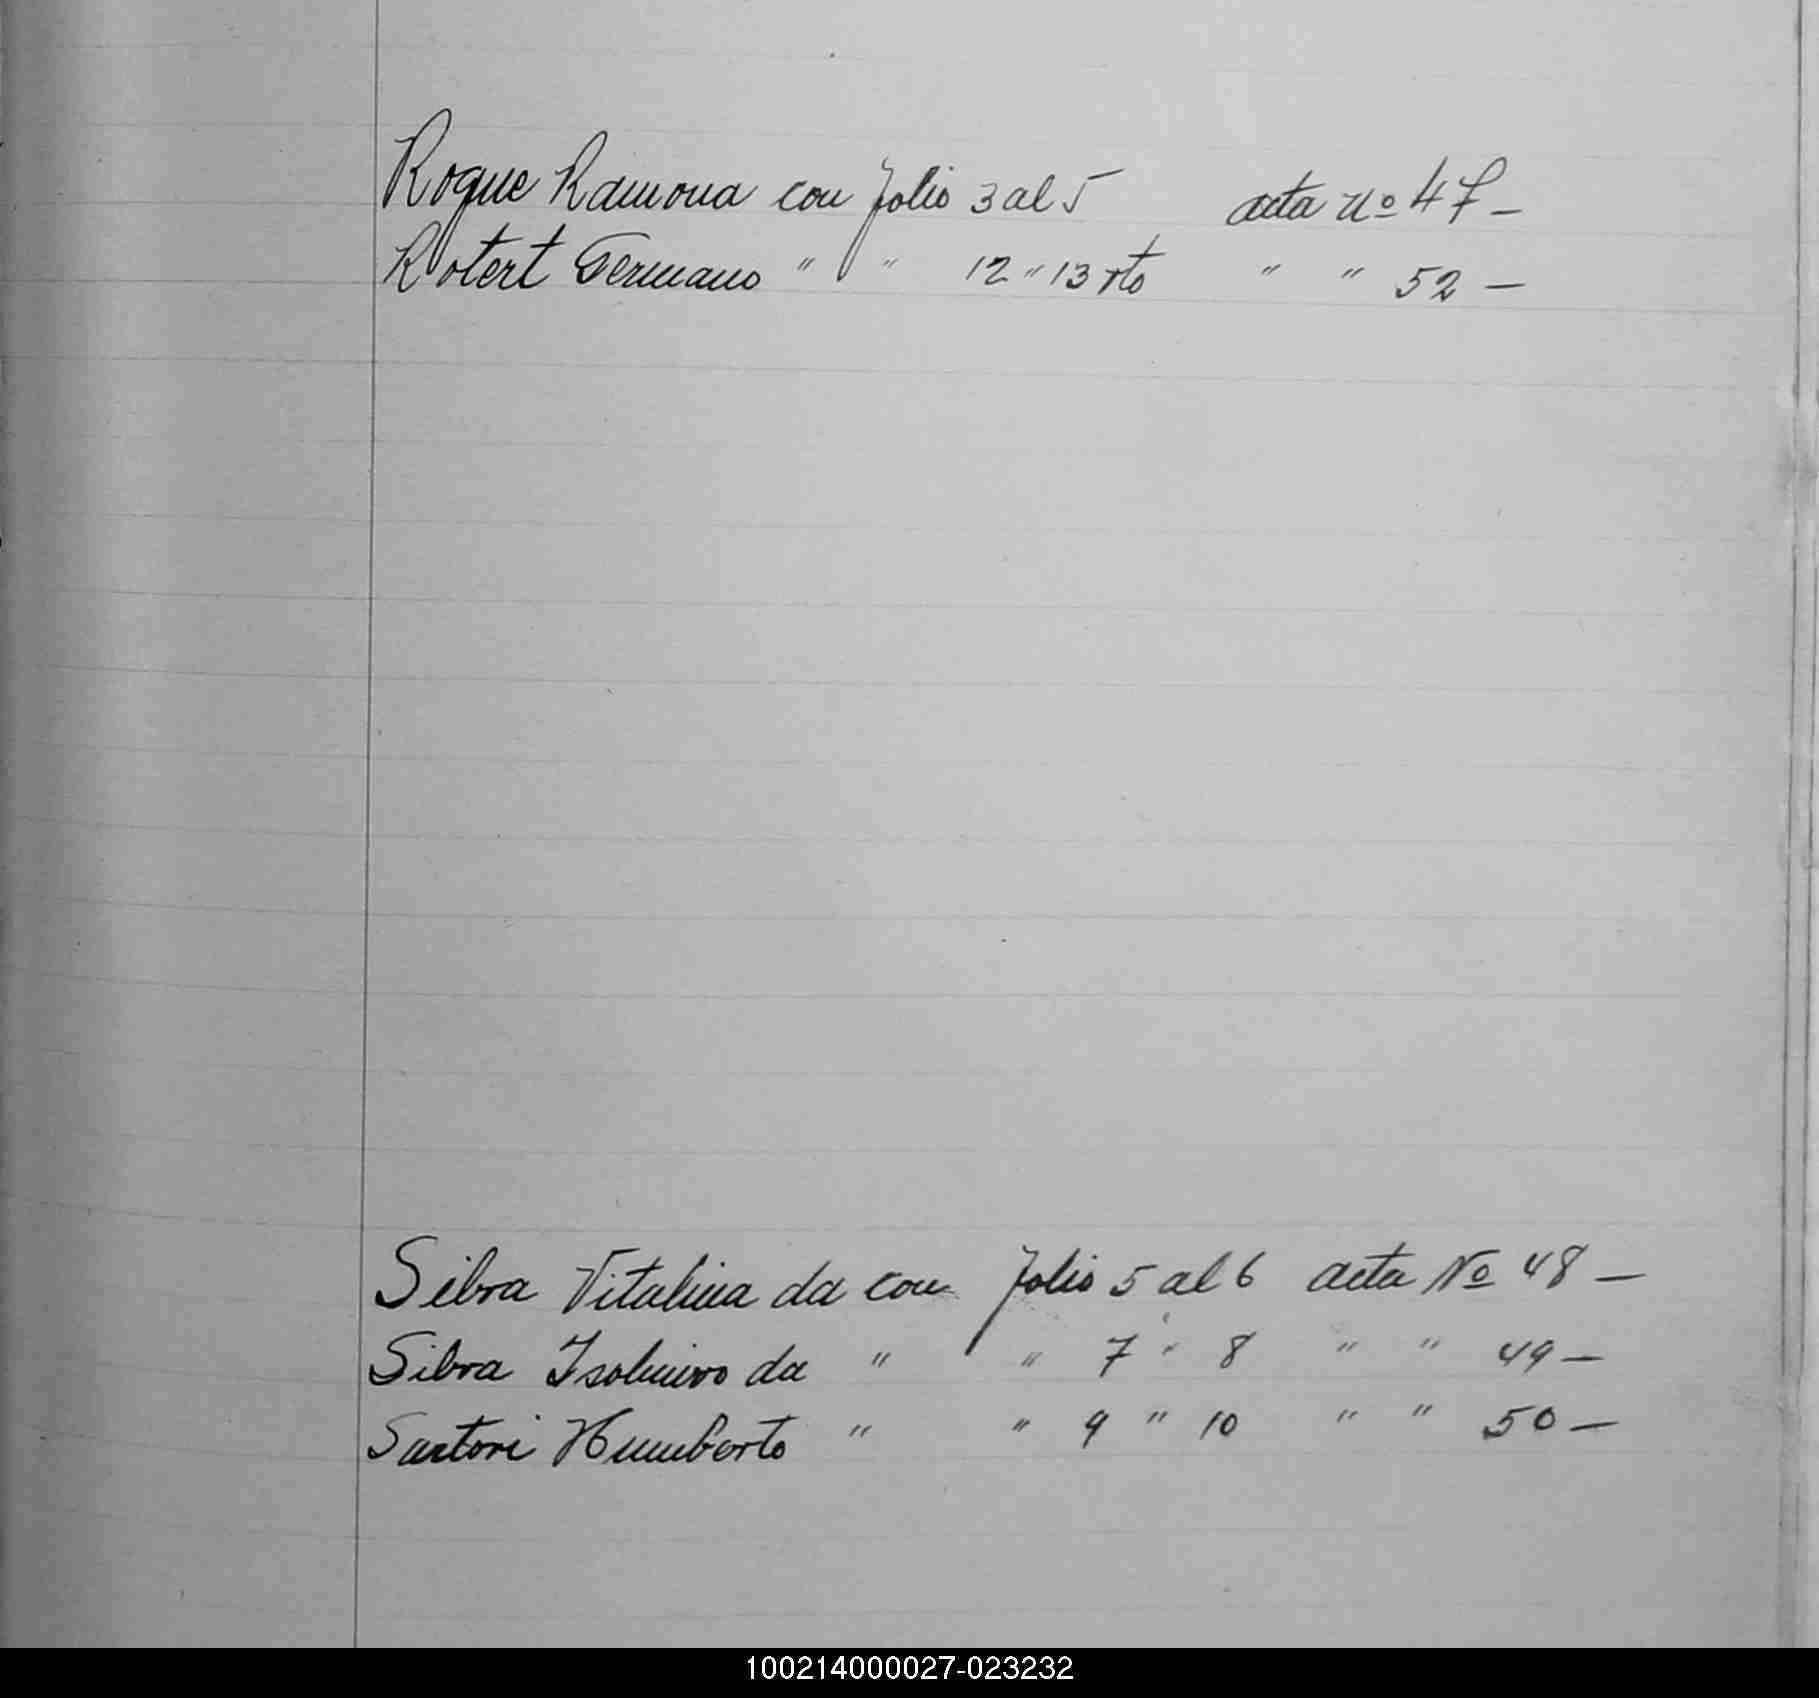 Roque Ramona con folio 3 al 5 acta nº 47 –
Rotert Germano " " 12 " 13 vto " " 52 –
Silva Vitalina da con folio 5 al 6 acta Nº 48 –
Silva Isolmiro da " " 7 " 8 " " 49 –
Sartori Humberto " " 9 " 10 " " 50 –
100214000027-023232